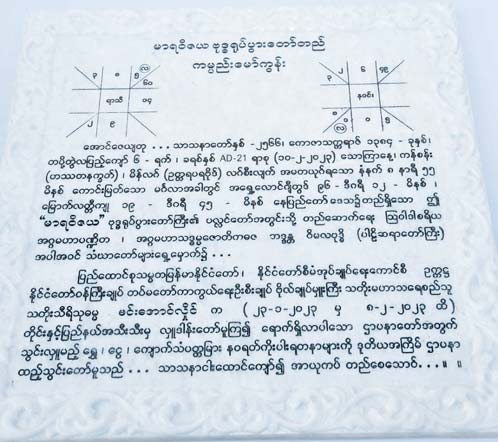 မာရဝိဇယ ဗုဒ္ဓရုပ်ပွားတော်တည်
ကမ္ပည်းမော်ကွန်း
၃ ၈ ၅ လ ၆၀
ရာသီ ၁၄
၂ ၉
၂ ၆ ၄၉
နဝင်း ၃
လ ၀ ၀ ၅
အောင်ဇေယျတု ... သာသနာတော်နှစ် -၂၅၆၆၊ ကောဇာသက္ကရာဇ် ၁၃၈၄ - ခုနှစ်၊
တပို့တွဲလပြည့်ကျော် ၆ - ရက် ၊ ခရစ်နှစ် AD-21 ရာစု (၁၀-၂-၂၀၂၃) သောကြာနေ့၊ ကန်စန်း
(ဟဿတနက္ခတ်) ၊ မိန်လဂ် (ဥတ္တရပရပိုဒ်) လဂ်စီးလျက် အပတယုတ်ရသော နံနက် ၈ နာရီ ၅၅
မိနစ် ကောင်းမြတ်သော မင်္ဂလာအခါတွင် အရှေ့လောင်ဂျီတွဒ် ၉၆ - ဒီဂရီ ၁၂ - မိနစ် ၊
မြောက်လတ္တီကျု ၁၉ - ဒီဂရီ ၄၅ - မိနစ် နေပြည်တော် ဒေသ၌တည်ရှိသော ဤ
"မာရဝိဇယ" ဗုဒ္ဓရုပ်ပွားတော်ကြီး၏ ပလ္လင်တော်အတွင်းသို့ တည်ဆောက်ရေး ဩဝါဒါစရိယ
အဂ္ဂမဟာပဏ္ဍိတ ၊ အဂ္ဂမဟာသဒ္ဓမ္မဇောတိကဓဇ ဘဒ္ဒန္တ ဝိမလဗုဒ္ဓိ (ပါဠိဆရာတော်ကြီး)
အပါအဝင် သံဃာတော်များရှေ့မှောက်၌ ...
ပြည်ထောင်စုသမ္မတမြန်မာနိုင်ငံတော် ၊ နိုင်ငံတော်စီမံအုပ်ချုပ်ရေးကောင်စီ ဥက္ကဋ္ဌ
နိုင်ငံတော်ဝန်ကြီးချုပ် တပ်မတော်ကာကွယ်ရေးဦးစီးချုပ် ဗိုလ်ချုပ်မှူးကြီး သတိုးမဟာသရေစည်သူ
သတိုးသီရိသုဓမ္မ မင်းအောင်လှိုင် က ( ၂၃-၁-၂၀၂၃ မှ ၈-၂-၂၀၂၃ ထိ )
တိုင်းနှင့်ပြည်နယ်အသီးသီးမှ လှူဒါန်းတော်မူကြ၍ ရောက်ရှိလာပါသော ဌာပနာတော်အတွက်
သွင်းလှူမည့် ရွှေ ၊ ငွေ ၊ ကျောက်သံပတ္တမြား နဝရတ်ကိုးပါးရတနာများကို ဒုတိယအကြိမ် ဌာပနာ
ထည့်သွင်းတော်မူသည် ... သာသနာငါးထောင်ကျော်၍ အာယုကပ် တည်စေသောဝ် ...။ ။